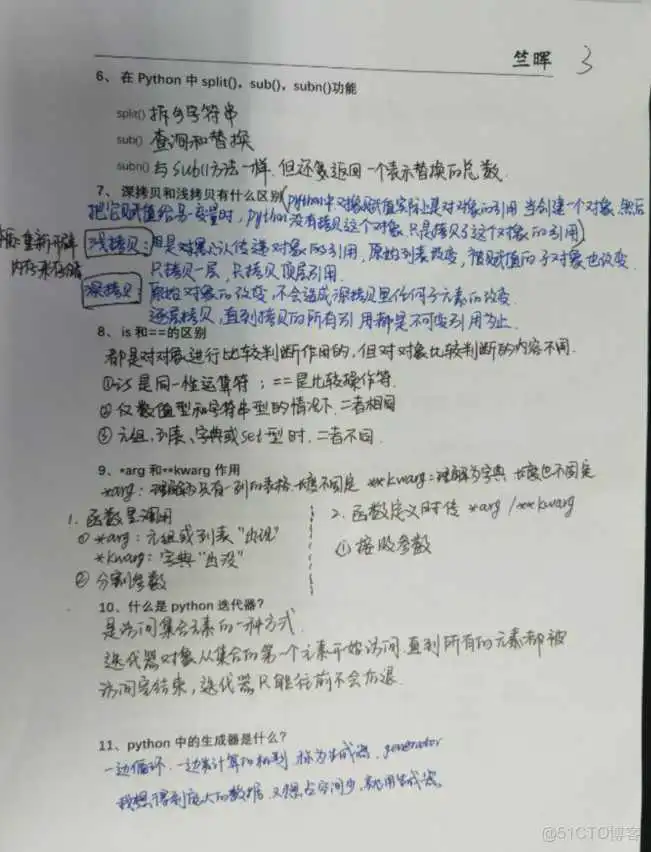 竺晖 3
6、在 Python 中 split(), sub(), subn()功能
split() 拆分字符串
sub() 查询和替换
subn() 与 sub()方法一样. 但还多返回一个表示替换的总数.
7、深拷贝和浅拷贝有什么区别 (python中对象赋值实际上是对对象的引用 当创建一个对象, 然后
把它赋值给另一变量时, python没有拷贝这个对象, 只是拷贝了这个对象的引用)
重新开辟
内存来存储
浅拷贝: 对象 传递对象的引用, 原始列表改变, 被赋值的子对象也改变.
只拷贝一层, 只拷贝顶层引用.
深拷贝: 原始对象的改变, 不会造成深拷贝里任何子元素的改变
逐层拷贝, 直到拷贝的所有引用都是不可变引用为止.
8、is 和==的区别
都是对对象进行比较判断作用的, 但对对象比较判断的内容不同.
①is 是同一性运算符 ; == 是比较操作符.
② 仅数值型和字符串型的情况下. 二者相同
③ 元组、列表、字典或set型时. 二者不同.
9、*arg 和**kwarg 作用
*arg: 理解为只有一列的表格. 长度不固定 **kwarg: 理解为字典 长度也不固定
1. 函数里调用
① *arg: 元组或列表"出现"
*kwarg: 字典"出没"
② 分割参数
2. 函数定义时传 *arg /**kwarg
① 接收参数
10、什么是 python 迭代器?
是访问集合元素的一种方式.
迭代器对象从集合的第一个元素开始访问. 直到所有的元素都被
访问完结束, 迭代器只能往前不会后退.
11、python 中的生成器是什么?
一边循环. 一边计算的机制 称为生成器. generator
我想得到庞大的数据. 又想占空间少, 就用生成器.
@51CTO博客